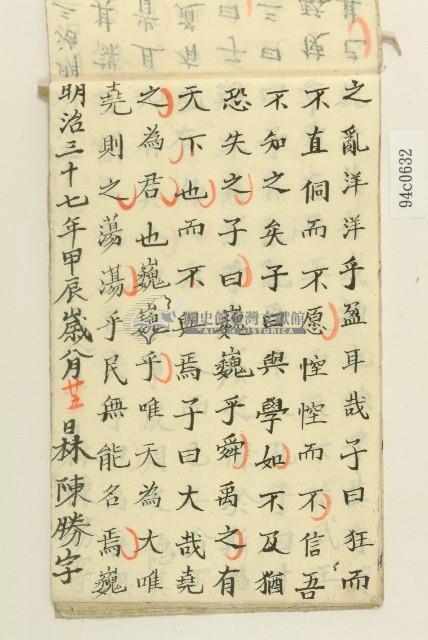 之亂洋洋乎盈耳哉子曰狂而
不直侗而不愿悾悾而不信吾
不知之矣子曰與學如不及猶
恐失之子曰巍巍乎舜禹之有
天下也而不與焉子曰大哉堯
之為君也巍巍乎唯天為大唯
堯則之蕩蕩乎民無能名焉巍
明治三十七年甲辰歲八月廿五日林陳勝字
94c0632